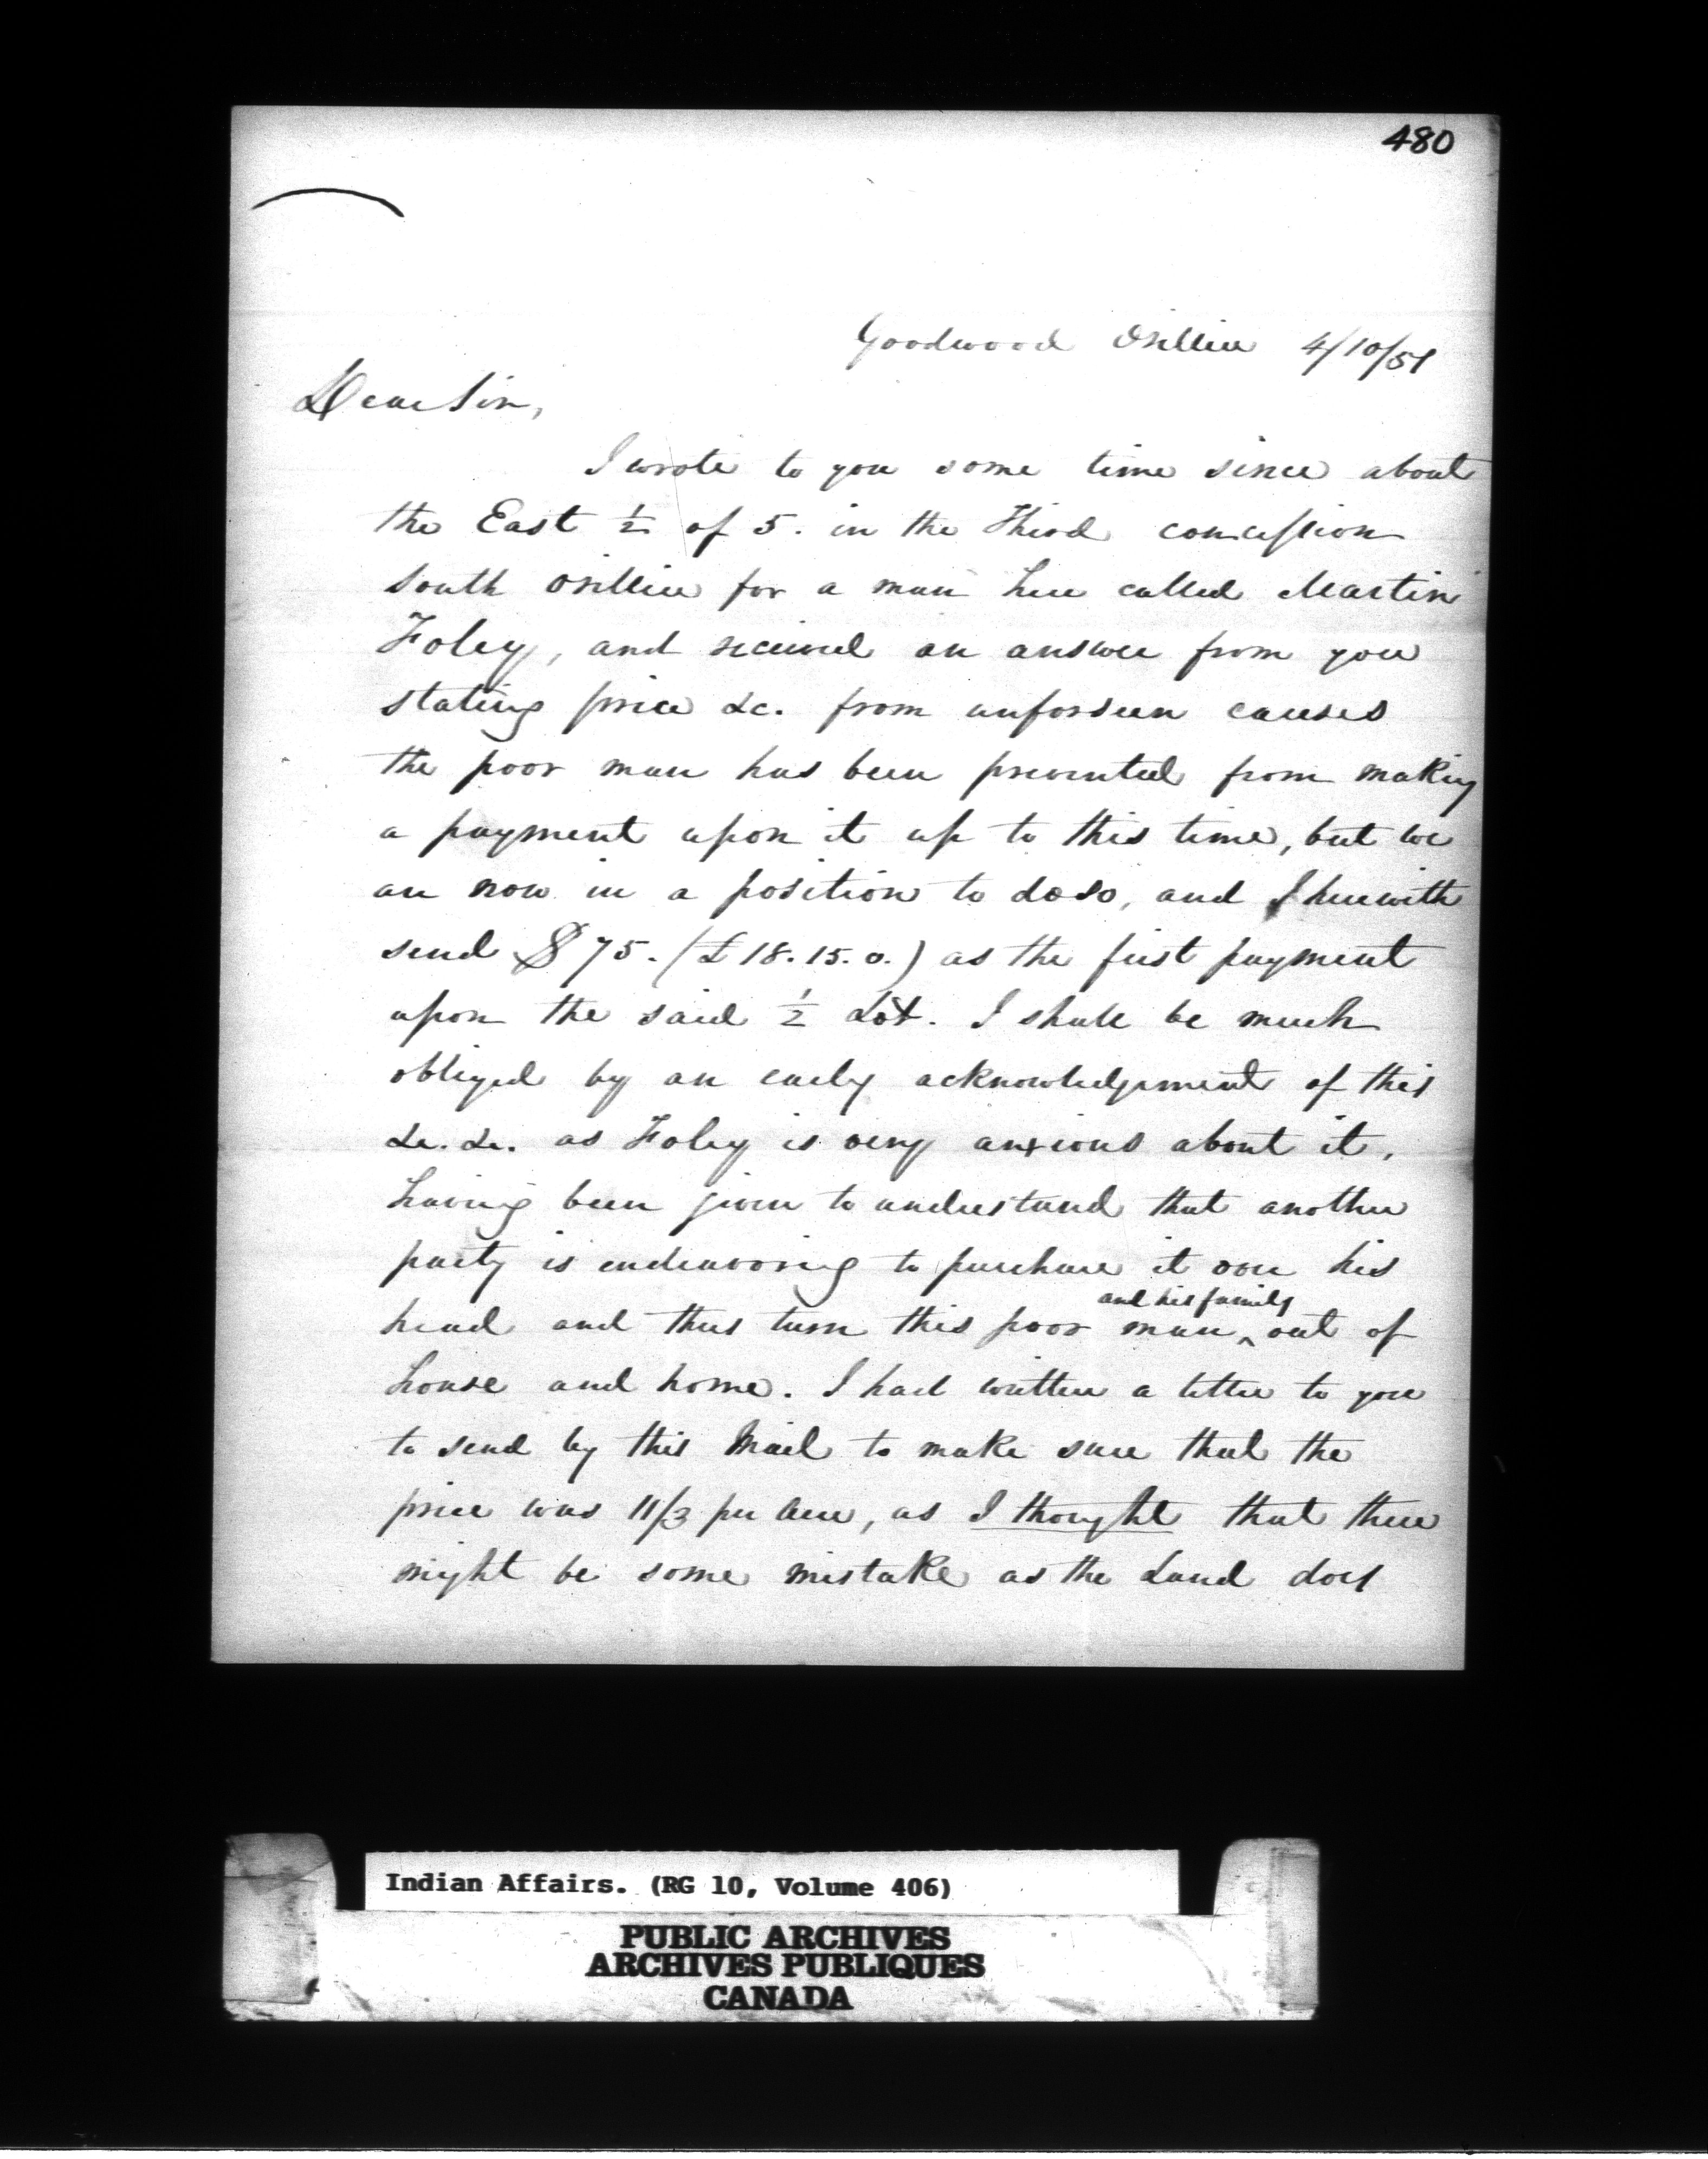 480
Goodwood Orillia 4/10/51
Dear Sir,
I wrote to you some time since about
the East ½ of 5. in the Third concession
South Orillia for a man here called Martin
Foley, and received an answer from you
stating price &c. from unforseen causes
the poor man has been prevented from making
a payment upon it up to this time, but we
are now in a position to do so, and I herewith
send $75. (£18.15.0.) as the first payment
upon the said ½ Lot. I shall be much
obliged by an early acknowledgement of this
&c. &c. as Foley is very anxious about it,
having been given to understand that another
party is endeavoring to purchase it over his
head and thus turn this poor man ^and his family out of
house and home. I had written a letter to you
to send by this Mail to make sure that the
price was 11/3 per Acre, as I thought that there
might be some mistake as the Land does
Indian Affairs. (RG 10, Volume 406)
PUBLIC ARCHIVES
ARCHIVES PUBLIQUES
CANADA